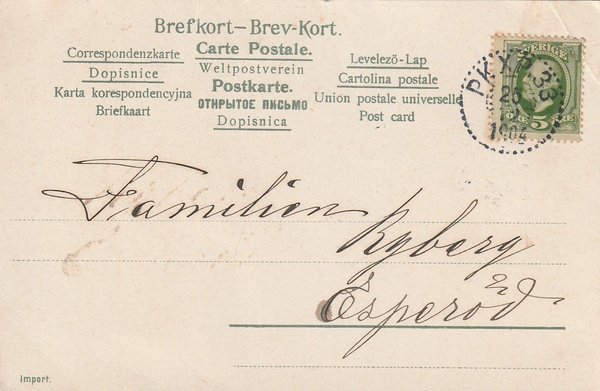 Brefkort—Brev-Kort.
Correspondenzkarte Carte Postale. Levelező-Lap
Dopisnice Weltpostverein Cartolina postale
Karta korespondencyjna Postkarte. Union postale universelle
Briefkaart ОТКРЫТОЕ ПИСЬМО Post card
Dopisnica
SVERIGE
PKXP 33
26
1904
5
Familien Ryberg
Esperöd
Import.